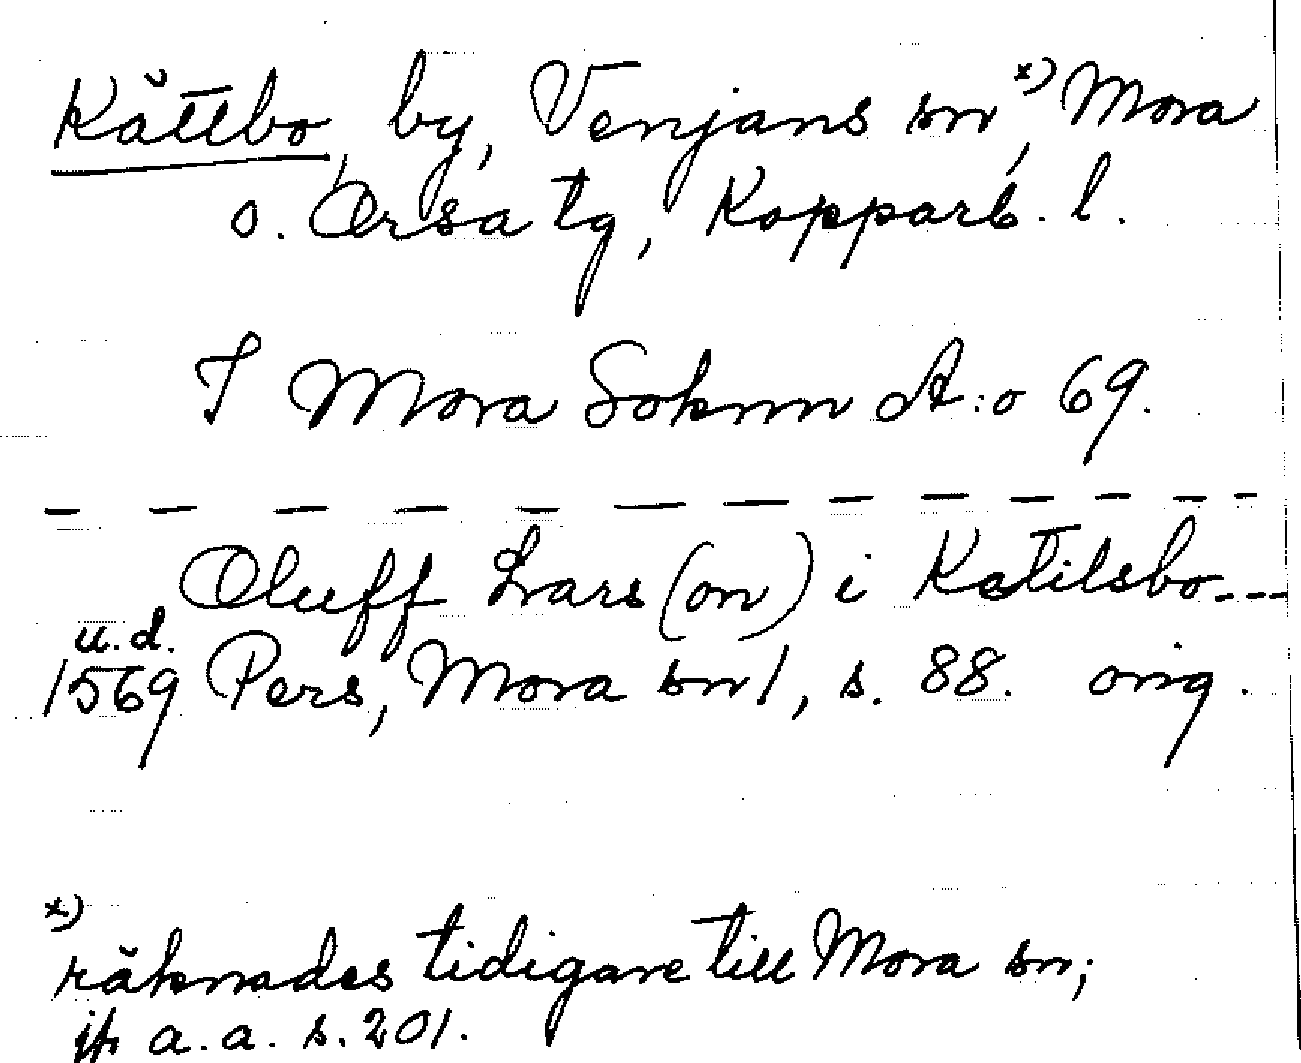 Kättbo, by, Venjans sn,x) Mora
o. Orsa tg, Kopparb. l.
I Mora Soknn A:o 69.
— — — — — — — — — — — —
Oluff Lars (on) i Katilsbo ---
u.d.
1569 Pers, Mora sn 1, s. 88. orig.
x)
räknades tidigare till Mora sn;
jfr a. a. s. 201.